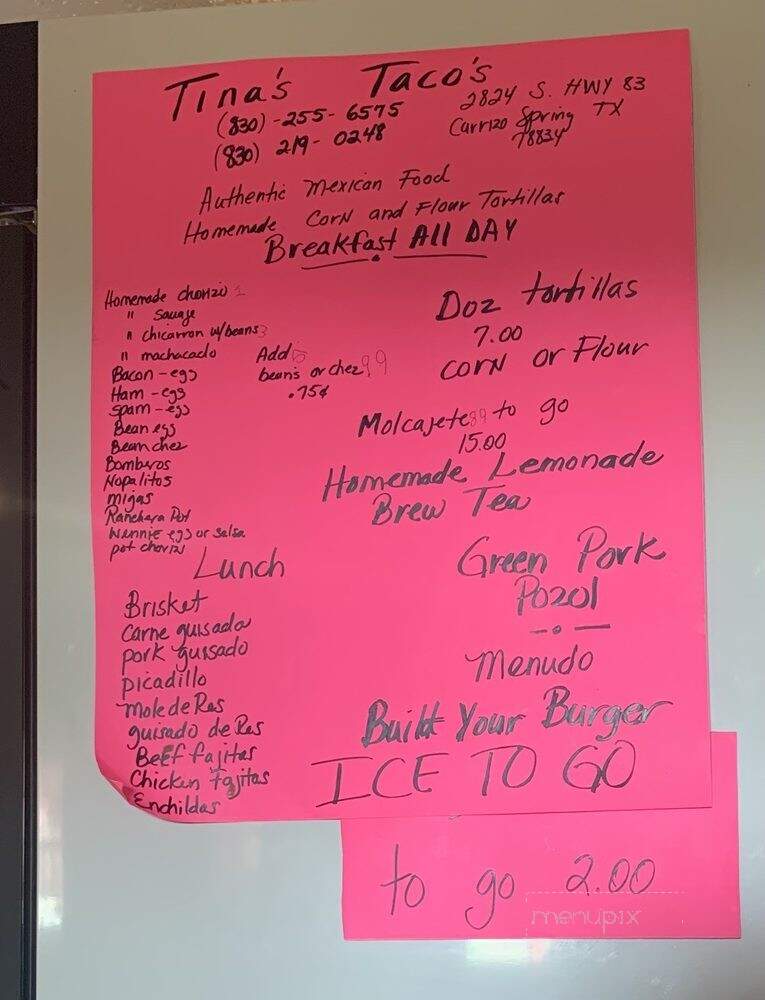 Tina's Taco's
(830)-255-6575
(830) 219-0248
2824 S. HWY 83
Carrizo Spring TX
78834
Authentic Mexican Food
Homemade Corn and Flour Tortillas
Breakfast All DAY
Homemade chorizo
" sausage
" chicarron w/beans
" machacado
Bacon-egg
Ham-egg
Spam-egg
Bean egg
Bean chez
Bomberos
Nopalitos
migas
Ranchera Pot
Wennie egg or salsa
pot chorizo
Add
beans or chez
.75¢
Doz tortillas
7.00
Corn or Flour
Molcajete to go
15.00
Homemade Lemonade
Brew Tea
Green Pork
Pozol
Menudo
Build Your Burger
ICE TO GO
Lunch
Brisket
Carne guisada
pork guisado
picadillo
Mole de Res
guisado de Res
Beef fajitas
Chicken Fajitas
Enchildas
to go 2.00
menupix